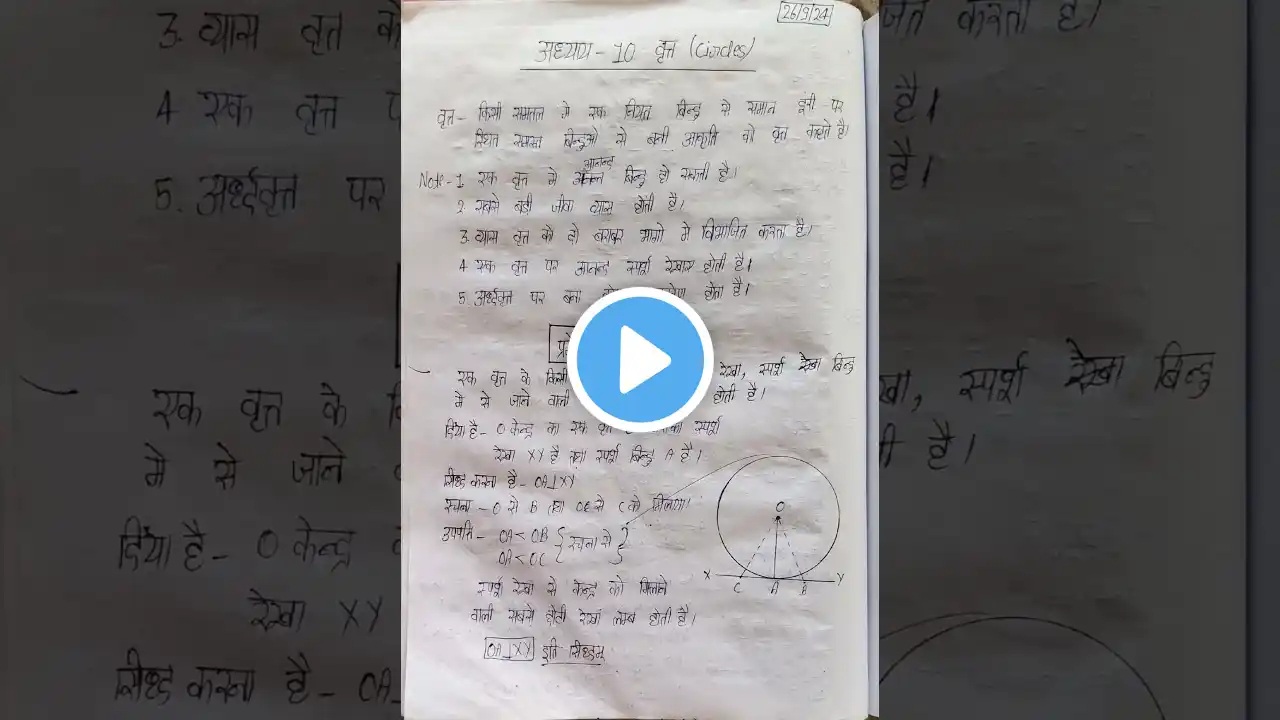 26/9/24
अध्याय - 10 वृत्त (Circles)
वृत्त - किसी समतल मे एक नियत बिन्दु से समान दूरी पर
स्थित समस्त बिन्दुओ से बनी आकृति को वृत्त कहते है।
Note - 1 एक वृत्त मे आनन्द बिन्दु हो सकती है।
2. सबसे बडी जीवा व्यास होती है।
3. व्यास वृत्त को दो बराबर भागो मे विभाजित करता है।
4 एक वृत्त पर आनन्द स्पर्श रेखाए होती है।
5. अर्धवृत्त पर बना होता है।
एक वृत्त के किसी रेखा, स्पर्श रेखा बिन्दु
मे से जाने वाली होती है।
दिया है - O केन्द्र का एक वृत्त स्पर्श
रेखा XY है तथा स्पर्श बिन्दु A है।
सिद्ध करना है - OA⊥XY
रचना - O से B तथा O से C को मिलाया।
उपपत्ति - OA < OB } रचना से }
OA < OC
स्पर्श रेखा से केन्द्र को मिलाने
वाली सबसे छोटी रेखा लम्ब होती है।
OA⊥XY इति सिद्धम्
O
X C A B Y
3. व्यास वृत्त को
4 एक वृत्त
5. अर्धवृत्त पर
एक वृत्त के
मे से जाने
दिया है - O केन्द्र
रेखा XY
सिद्ध करना है - OA
करता है।
है।
है।
रेखा, स्पर्श रेखा बिन्दु
है।